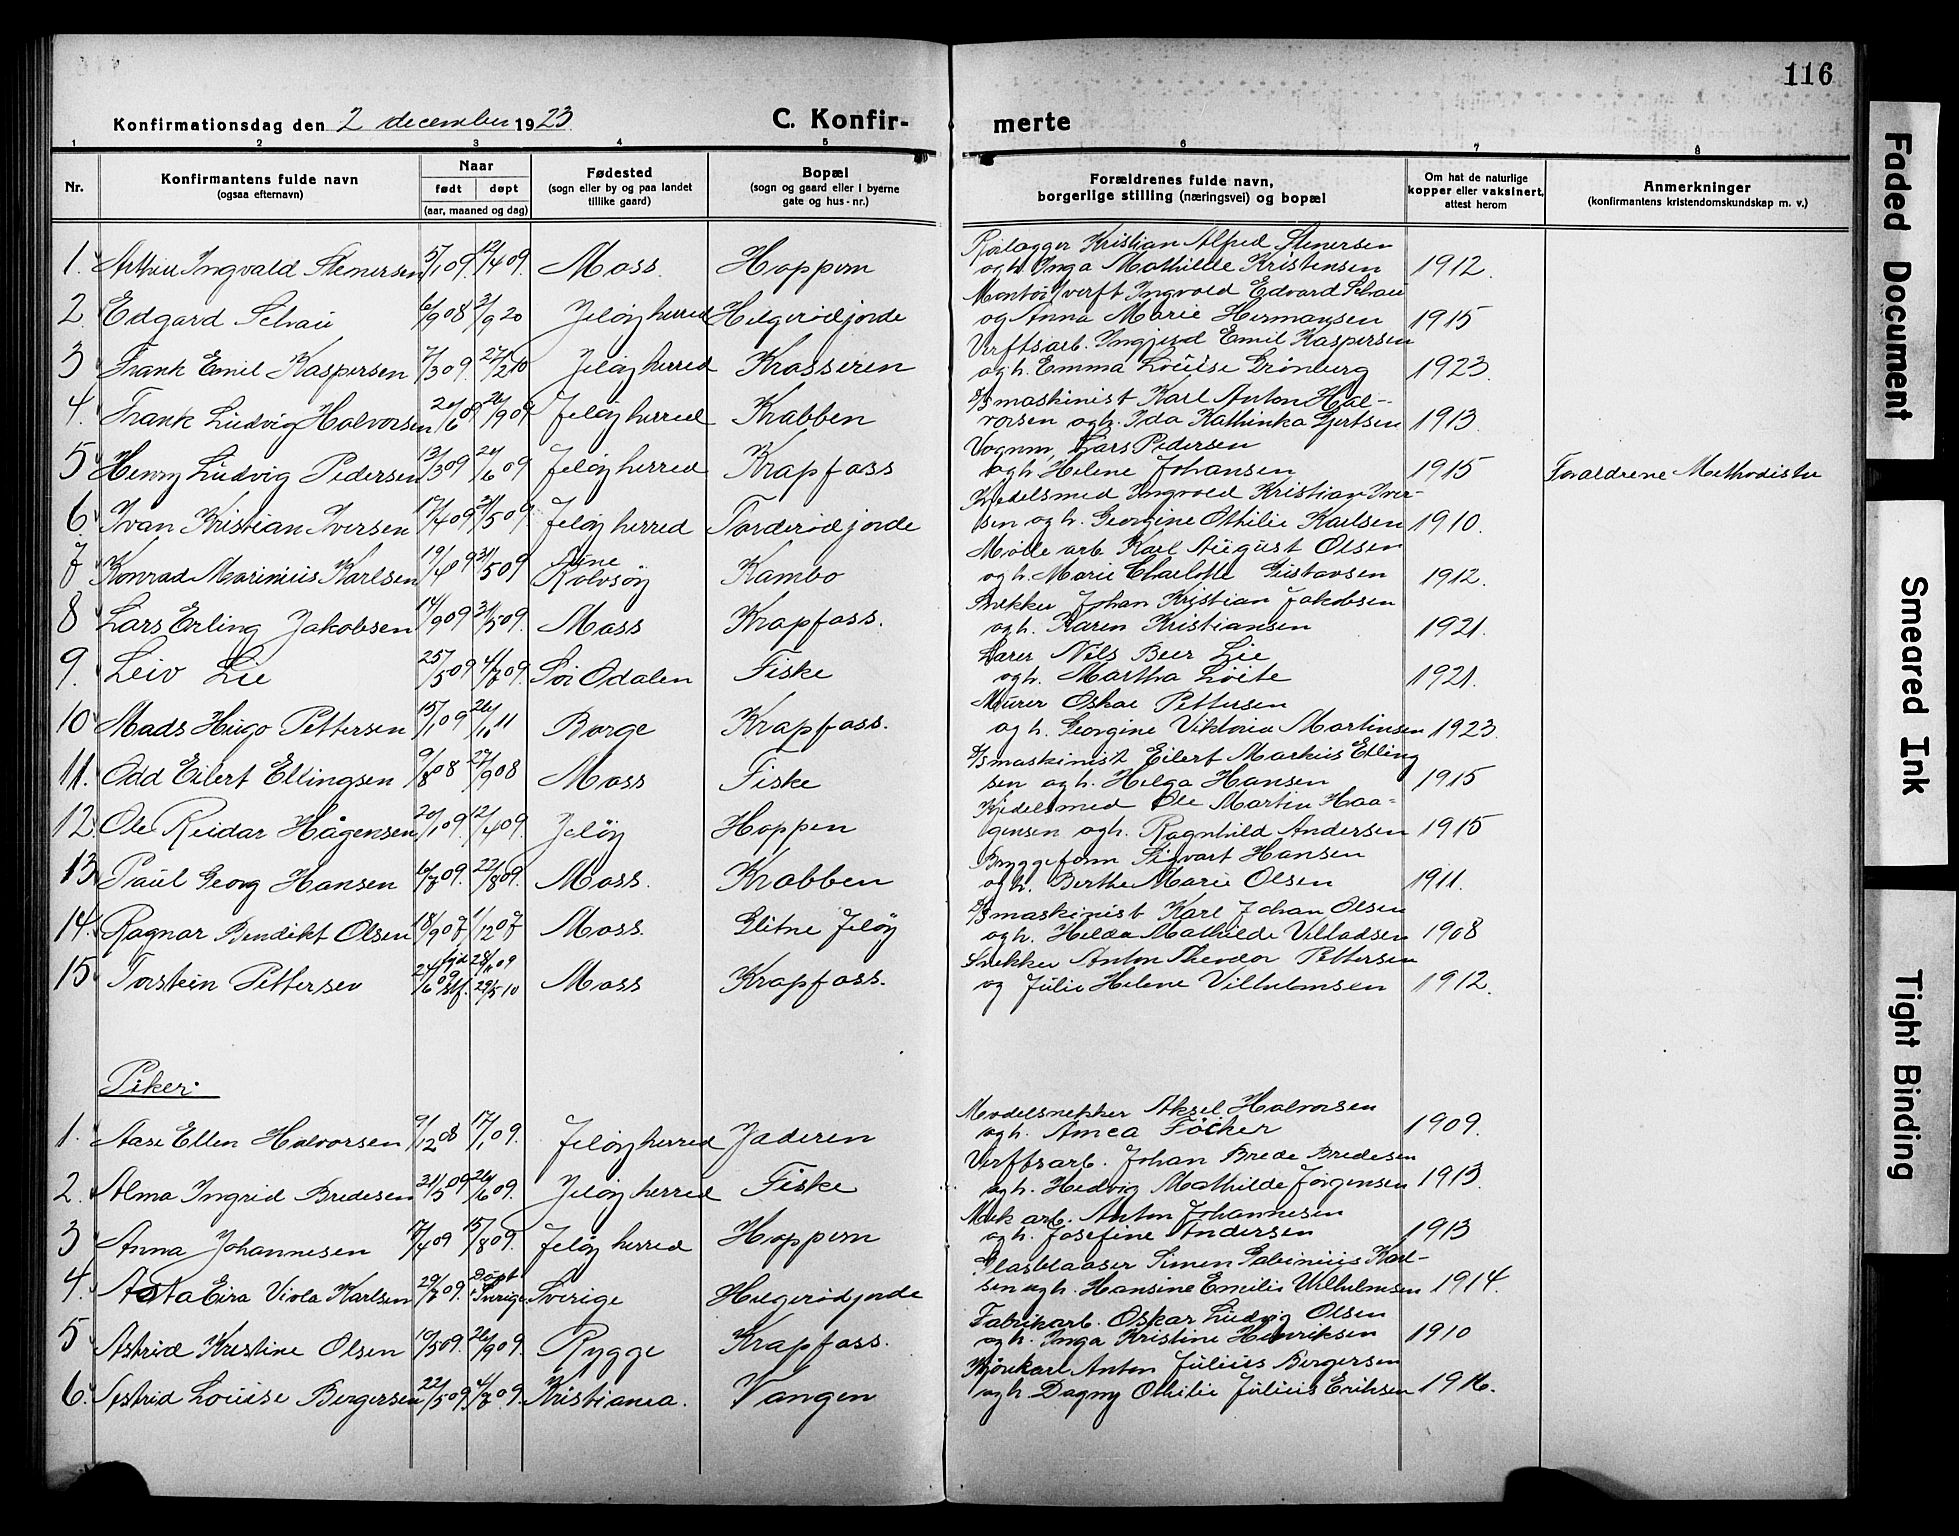 116
Konfirmationsdag den 2 december 1923.
C. Konfir-
merte
1 2 3 4 5 6 7 8
Nr.
Konfirmantens fulde navn
(ogsaa efternavn)
Naar
født døpt
(aar, maaned og dag)
Fødested
(sogn eller by og paa landet
tillike gaard)
Bopæl
(sogn og gaard eller i byerne
gate og hus-nr.)
Forældrenes fulde navn,
borgerlige stilling (næringsvei) og bopæl
Om hat de naturlige
kopper eller vaksinert,
attest herom
Anmerkninger
(konfirmantens kristendomskundskap m. v.)
Rørlægger Kristian Alfred Stenersen
1. Arthur Ingvald Stenersen 5/1 09. 12/4 09. Moss. Hoppern og h. Inga Mathilde Kristensen 1912.
Montør v/verft Ingvald Edvard Schau
2. Edgard Schau 6/9 08 3/9 20 Jeløy herred Helgerødjorde og Anna Marie Hermansen 1915
Verftsarb. Ingjud Emil Kaspersen
3 Frank Emil Kaspersen 7/3 09. 27/2 10 Jeløy herred Krasseren og h. Emma Louise Grønberg 1923.
D/S maskinist Karl Anton Hal-
4. Frank Ludvig Halvorsen 2/6 09 26/9 09 Jeløy herred Krabben vorsen og h. Ida Kathinka Gjertsen 1913
Vognm. Lars Pedersen
5 Henry Ludvig Pedersen 13/3 09 27/6 09 Jeløy herred Krapfoss og h. Helene Johansen 1915 Forældrene Methodister
Kjedelsmed Ingvold Kristian Iver-
6. Ivan Kristian Iversen 17/4 09 31/5 09 Jeløy herred Torderødjorde sen og h. Georgine Othilie Karlsen 1910.
Mølle arb. Karl August Olsen
7 Konrad Marinius Karlsen 19/4 09 31/5 09 Aune Rolvsøy Kambo og h. Marie Charlotte Gustavsen 1912.
Snekker Johan Kristian Jakobsen
8 Lars Erling Jakobsen 14/9 09 31/5 09. Moss Krapfoss. og h. Karen Kristiansen 1921.
Lærer Nils Beer Lie
9. Leiv Lie 25/5 09 4/7 09. Sør Odalen Fiske og h. Martha Løite 1921.
Murer Oskar Pettersen
10 Mads Hugo Pettersen 15/1 09 26/10 11 Borge Krapfoss. og h. Georgine Viktoria Martinsen 1923.
D/S maskinist Eilert Markus Elling
11. Odd Eilert Ellingsen 9/8 08 27/9 08 Moss Fiske sen og h. Helga Hansen 1915
Kjedelsmed Ole Martin Haa-
12. Ole Reidar Hågensen 20/1 09. 12/4 09. Jeløy Hoppen gensen og h. Ragnhild Andersen 1915
Bryggeform Sigvart Hansen
13 Paul Georg Hansen 6/7 09. 22/8 09. Moss. Krabben og h. Berthe Marie Olsen 1911.
D/S maskinist Karl Johan Olsen
14. Ragnar Bendikt Olsen 18/9 07 1/12 07 Moss. Glitne Jeløy og h. Helda Mathilde Villadsen 1908
Snekker Anton Theodor Pettersen
15. Torstein Pettersen 24/6 09 hjd 28/11 09 stf. 29/5 10 Moss Krapfoss. og Julie Helene Vilhelmsen 1912.
Piker.
Modelsnekker Aksel Halvorsen
1. Aase Ellen Halvorsen 9/12 08 17/1 09. Jeløy herred Jaderen og h. Amea Föcker 1909.
Verftsarb. Johan Brede Bredesen
2. Alma Ingrid Bredesen 31/5 09 26/6 09. Jeløy herred Fiske og h. Hedvig Mathilde Jørgensen 1913.
Mek arb. Anton Johannesen
3 Anna Johannesen 17/4 09 15/8 09. Jeløy herred Hoppern og h. Josefine Andersen 1913
Glasblaaser Simen Gabinius Karl-
4. Asta Eira Viola Karlsen 29/7 09. Døpt i Sverige Sverige Helgerødjorde sen og h. Hansine Emilie Wilhelmsen 1914.
Fabrikarb. Oskar Ludvig Olsen
5 Astrid Kristine Olsen 10/5 09. 26/9 09. Rygge Krapfoss. og h. Inga Kristine Henriksen 1910
Kjørekarl Anton Julius Bergersen
6. Astrid Louise Bergersen 22/5 09. 4/7 09. Kristiania. Vangen og h. Dagny Othilie Julius Eriksen 1916.
Faded Document
Smeared Ink
Tight Binding